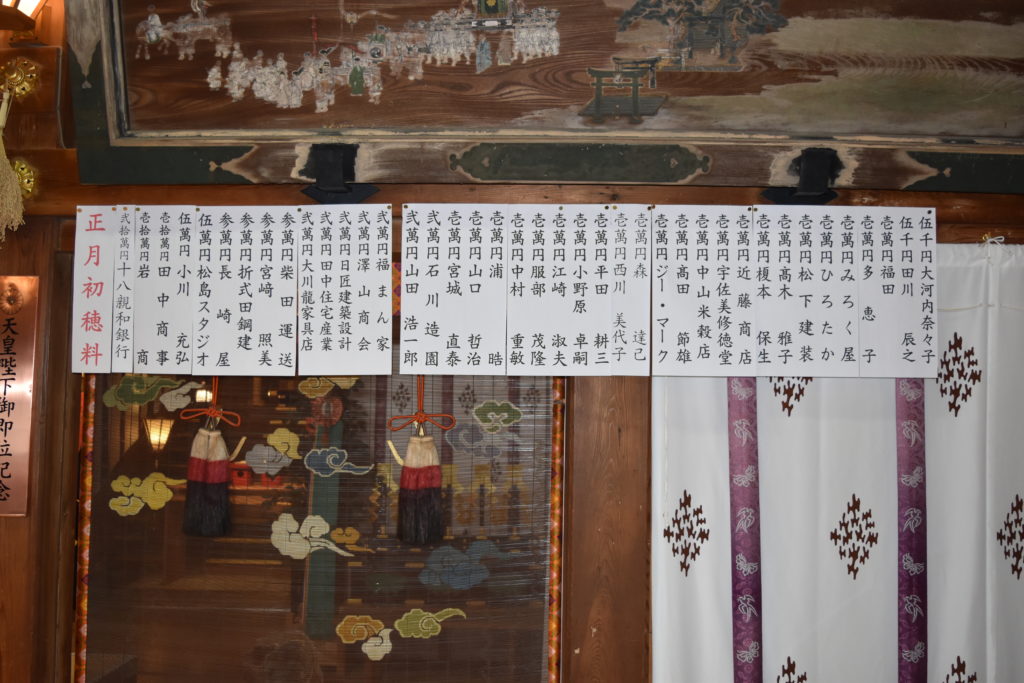 天皇陛下御即位記念
正月初穂料
弐拾萬円 十八親和銀行
壱拾萬円 岩崎 商
壱拾萬円 田中商事
伍萬円 小川 充弘
伍萬円 松島スタジオ
参萬円 長崎屋
参萬円 折式田鋼建
参萬円 宮﨑 照美
参萬円 柴田運送
弐萬円 大川龍家具店
弐萬円 田中住宅産業
弐萬円 日匠建築設計
弐萬円 澤山商会
弐萬円 福まん家
弐萬円 山田 浩一郎
弐萬円 石川造園
壱萬円 宮城 直泰
壱萬円 山口 哲治
壱萬円 浦 晧
壱萬円 中村 重敏
壱萬円 服部 茂隆
壱萬円 江崎 淑夫
壱萬円 小野原 卓嗣
壱萬円 平田 耕三
壱萬円 西川 美代子
壱萬円 森 達己
壱萬円 ジー・マーク
壱萬円 髙田 節雄
壱萬円 中山米穀店
壱萬円 宇佐美修徳堂
壱萬円 近藤商店
壱萬円 榎本 保生
壱萬円 髙木 雅子
壱萬円 松下建装
壱萬円 ひろたか
壱萬円 みろく屋
壱萬円 多恵子
壱萬円 福田
伍千円 田川 辰之
伍千円 大河内奈々子